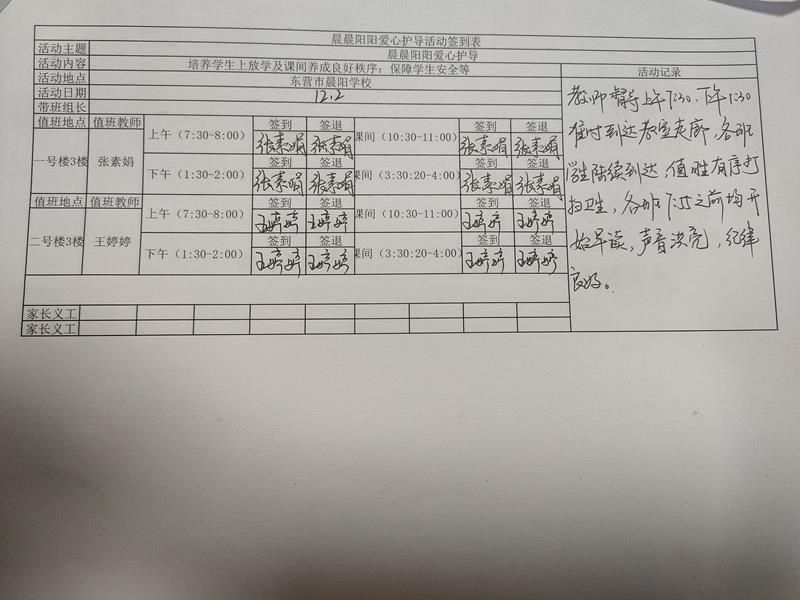 晨晨阳阳爱心护导活动签到表
活动主题 晨晨阳阳爱心护导
活动内容 培养学生上放学及课间养成良好秩序；保障学生安全等 活动记录
活动地点 东营市晨阳学校
活动日期 12.2
带班组长
值班地点 值班教师 上午（7:30-8:00） 签到 签退 课间（10:30-11:00） 签到 签退
张素娟 张素娟 张素娟 张素娟
一号楼3楼 张素娟 下午（1:30-2:00） 签到 签退 课间（3:30:20-4:00） 签到 签退
张素娟 张素娟 张素娟 张素娟
值班地点 值班教师 上午（7:30-8:00） 签到 签退 课间（10:30-11:00） 签到 签退
王婷婷 王婷婷 王婷婷 王婷婷
二号楼3楼 王婷婷 下午（1:30-2:00） 签到 签退 课间（3:30:20-4:00） 签到 签退
王婷婷 王婷婷 王婷婷 王婷婷
家长义工
家长义工
教师督导上午7:30.下午1:30
准时到达教室走廊，各班
学生陆续到达，值生有序打
扫卫生，各班7:55之前均开
始早读，声音洪亮，纪律
良好。